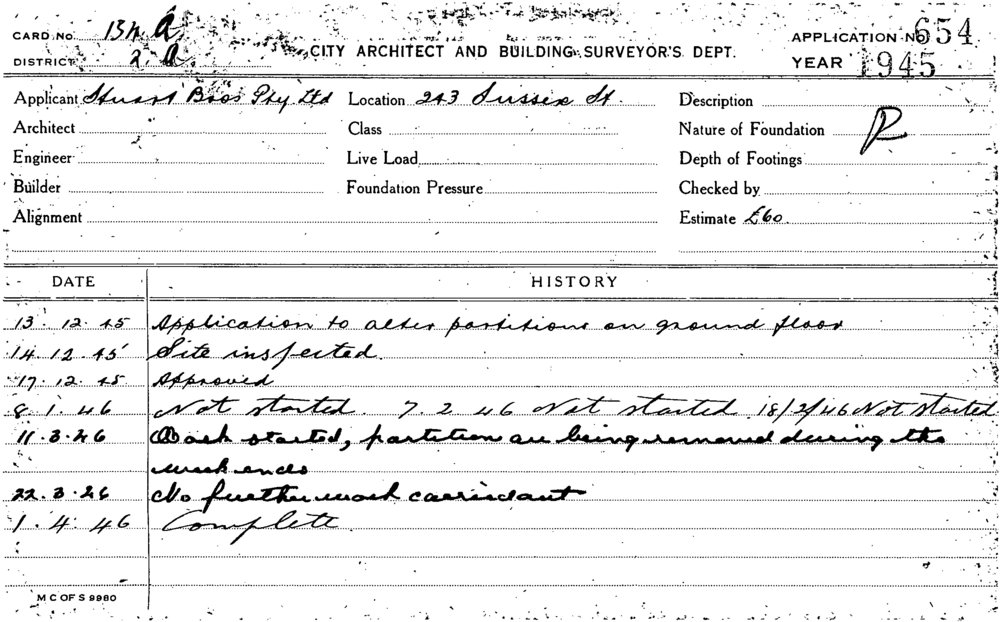 CARD No. 154 A APPLICATION No 654
DISTRICT 2 A CITY ARCHITECT AND BUILDING SURVEYOR'S DEPT. YEAR 1945
Applicant Stuart Bros Pty Ltd Location 243 Sussex St. Description
Architect Class Nature of Foundation
Engineer Live Load Depth of Footings
Builder Foundation Pressure Checked by
Alignment Estimate £60
DATE HISTORY
13. 12. 45 Application to alter partitions on ground floor
14. 12. 45 Site inspected.
17. 12. 45 Approved
8. 1. 46 Not started. 7. 2 46 Not started 18/2/46 Not started
11. 3. 46 Work started, partition are being removed during the
week ends
22. 3. 46 No further work carried out
1. 4. 46 Complete.
M C OF S 9980